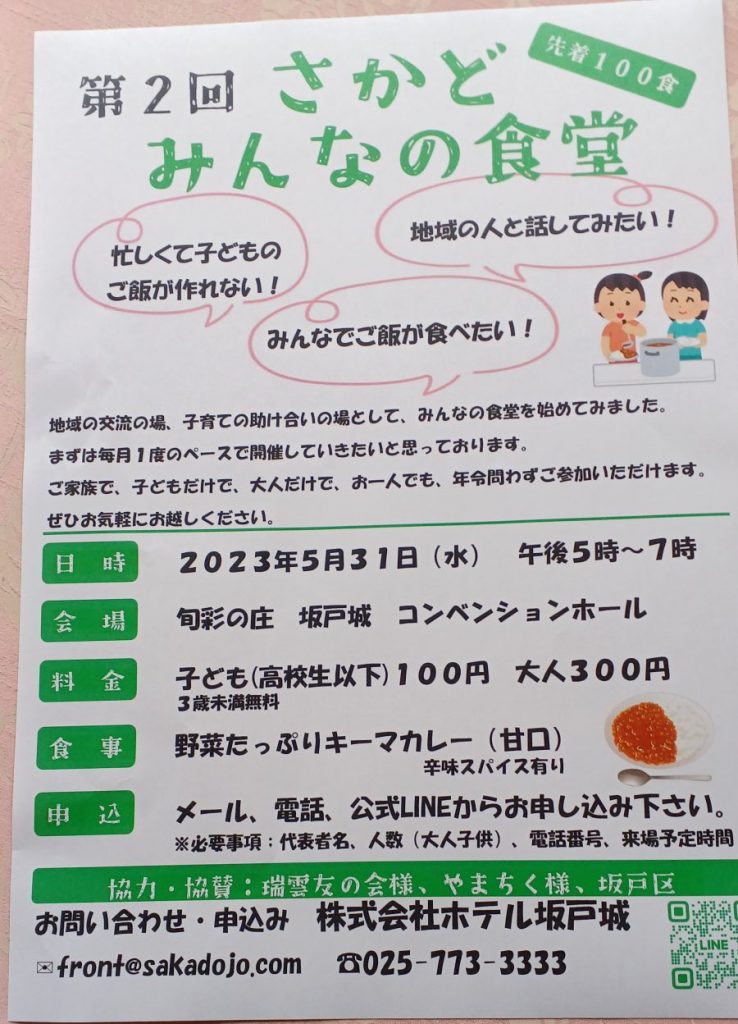 第2回 さかど
先着100食
みんなの食堂
忙しくて子どもの
ご飯が作れない！
地域の人と話してみたい！
みんなでご飯が食べたい！
地域の交流の場、子育ての助け合いの場として、みんなの食堂を始めてみました。
まずは毎月１度のペースで開催していきたいと思っております。
ご家族で、子どもだけで、大人だけで、お一人でも、年令問わずご参加いただけます。
ぜひお気軽にお越しください。
日時 2023年5月31日（水） 午後5時～7時
会場 旬彩の庄 坂戸城 コンベンションホール
料金 子ども(高校生以下)100円 大人300円
3歳未満無料
食事 野菜たっぷりキーマカレー（甘口）
辛味スパイス有り
申込 メール、電話、公式LINEからお申し込み下さい。
※必要事項：代表者名、人数（大人子供）、電話番号、来場予定時間
協力・協賛：瑞雲友の会様、やまちく様、坂戸区
お問い合わせ・申込み 株式会社ホテル坂戸城
✉front@sakadojo.com ☎025-773-3333
LINE